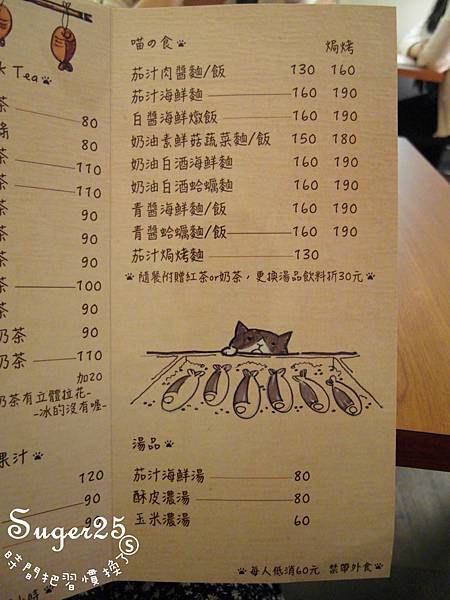 Tea
茶
80
醬
80
茶 110
茶 110
茶 90
茶 90
茶 90
茶 100
茶 90
奶茶 90
奶茶 110
加20
奶茶有立體拉花-
-冰的沒有喔-
果汁
120
90
90
喵の食
焗烤
茄汁肉醬麵/飯 130 160
茄汁海鮮麵 160 190
白醬海鮮燉飯 160 190
奶油素鮮菇蔬菜麵/飯 150 180
奶油白酒海鮮麵 160 190
奶油白酒蛤蠣麵 160 190
青醬海鮮麵/飯 160 190
青醬蛤蠣麵/飯 160 190
茄汁焗烤麵 130
隨餐附贈紅茶or奶茶，更換湯品飲料折30元
湯品
茄汁海鮮湯 80
酥皮濃湯 80
玉米濃湯 60
每人低消60元 禁帶外食
Suger25
時間把習慣換了
S
小時